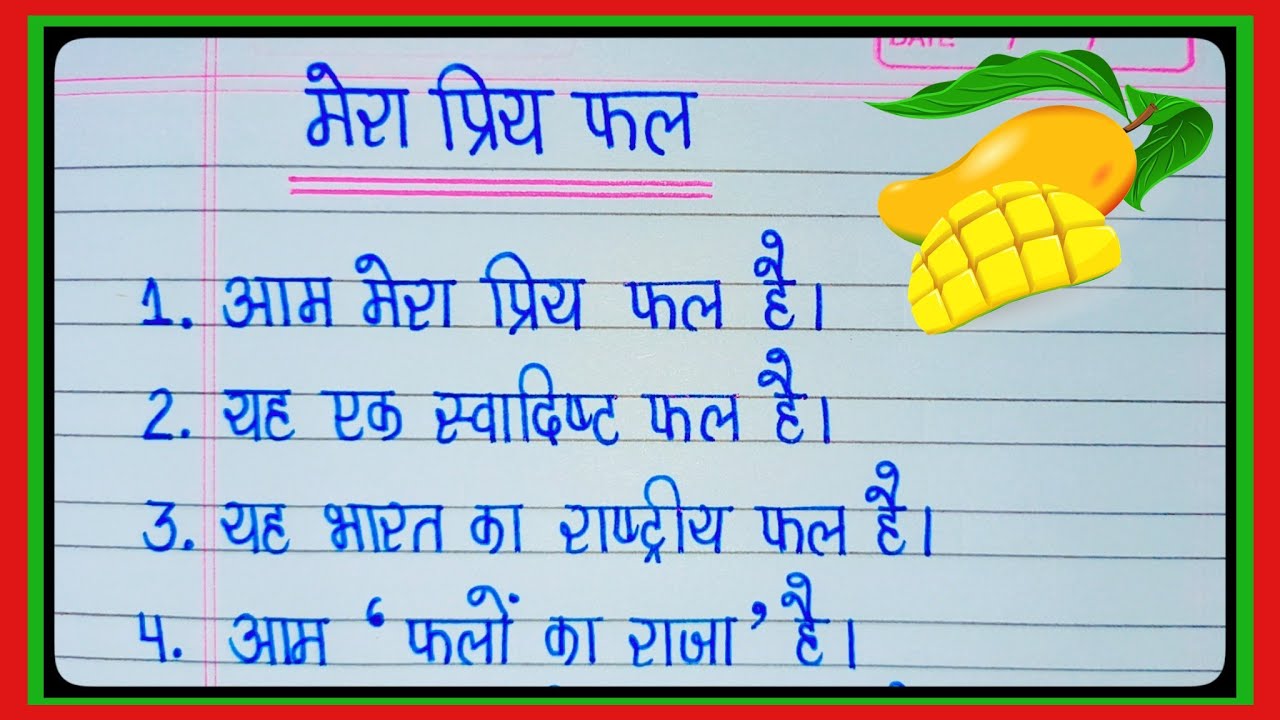 DATE / /
मेरा प्रिय फल
1. आम मेरा प्रिय फल है।
2. यह एक स्वादिष्ट फल है।
3. यह भारत का राष्ट्रीय फल है।
4. आम ‘फलों का राजा’ है।